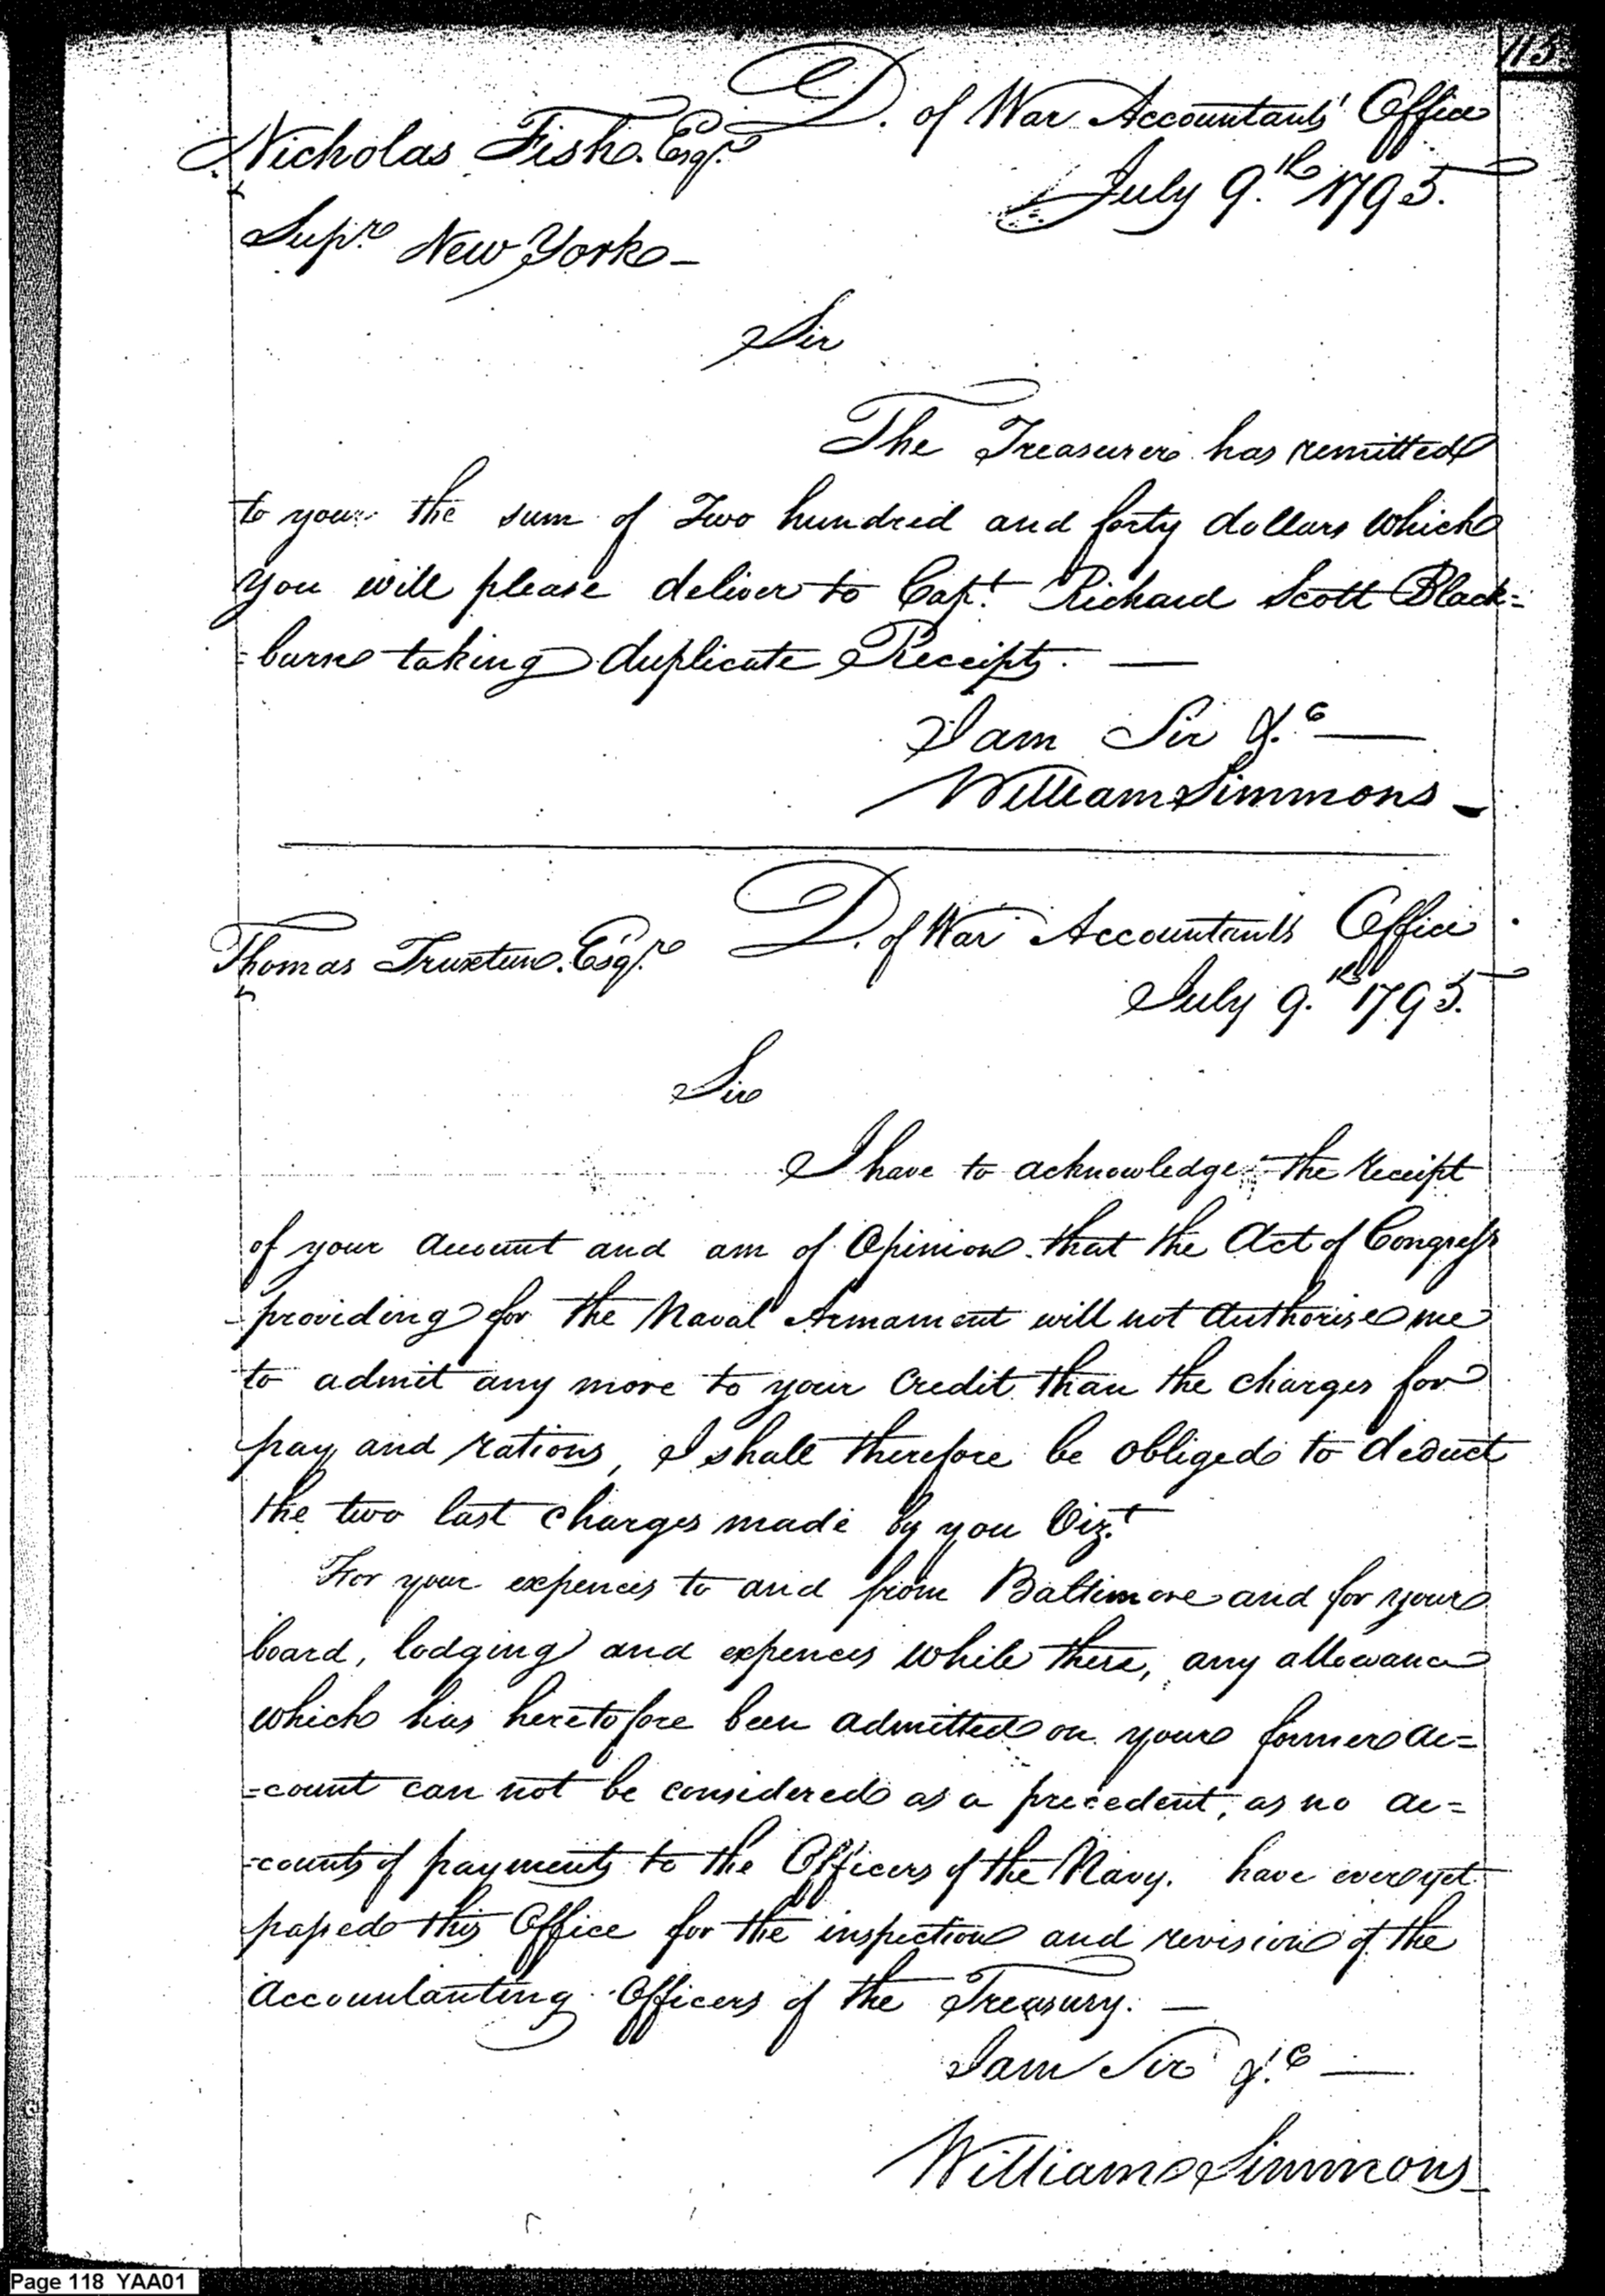 115
D. of War Accountants' Office
Nicholas Fish Esqr.
July 9.th 1795.
Supr. New York -
Sir
The Treasurer has remitted
to you the sum of Two hundred and forty dollars which
you will please deliver to Capt. Richard Scott Black-
-burn taking duplicate Receipts. —
I am Sir &.c —
William Simmons -
D. of War Accountants Office
Thomas Truxtun. Esqr.
July 9.th 1795.
Sir
I have to acknowledge the receipt
of your Account and am of Opinion that the Act of Congress
providing for the Naval Armament will not Authorise me
to admit any more to your Credit than the charges for
pay and rations, I shall therefore be obliged to deduct
the two last charges made by you Vizt.
For your expences to and from Baltimore and for your
board, lodging and expences while there, any allowance
which has heretofore been admitted on your former ac=
=count can not be considered as a precedent, as no ac=
=counts of payments to the Officers of the Navy. have ever yet
passed this Office for the inspection and revision of the
Accountanting Officers of the Treasury. —
I am Sir &.c —
William Simmons
Page 118 YAA01